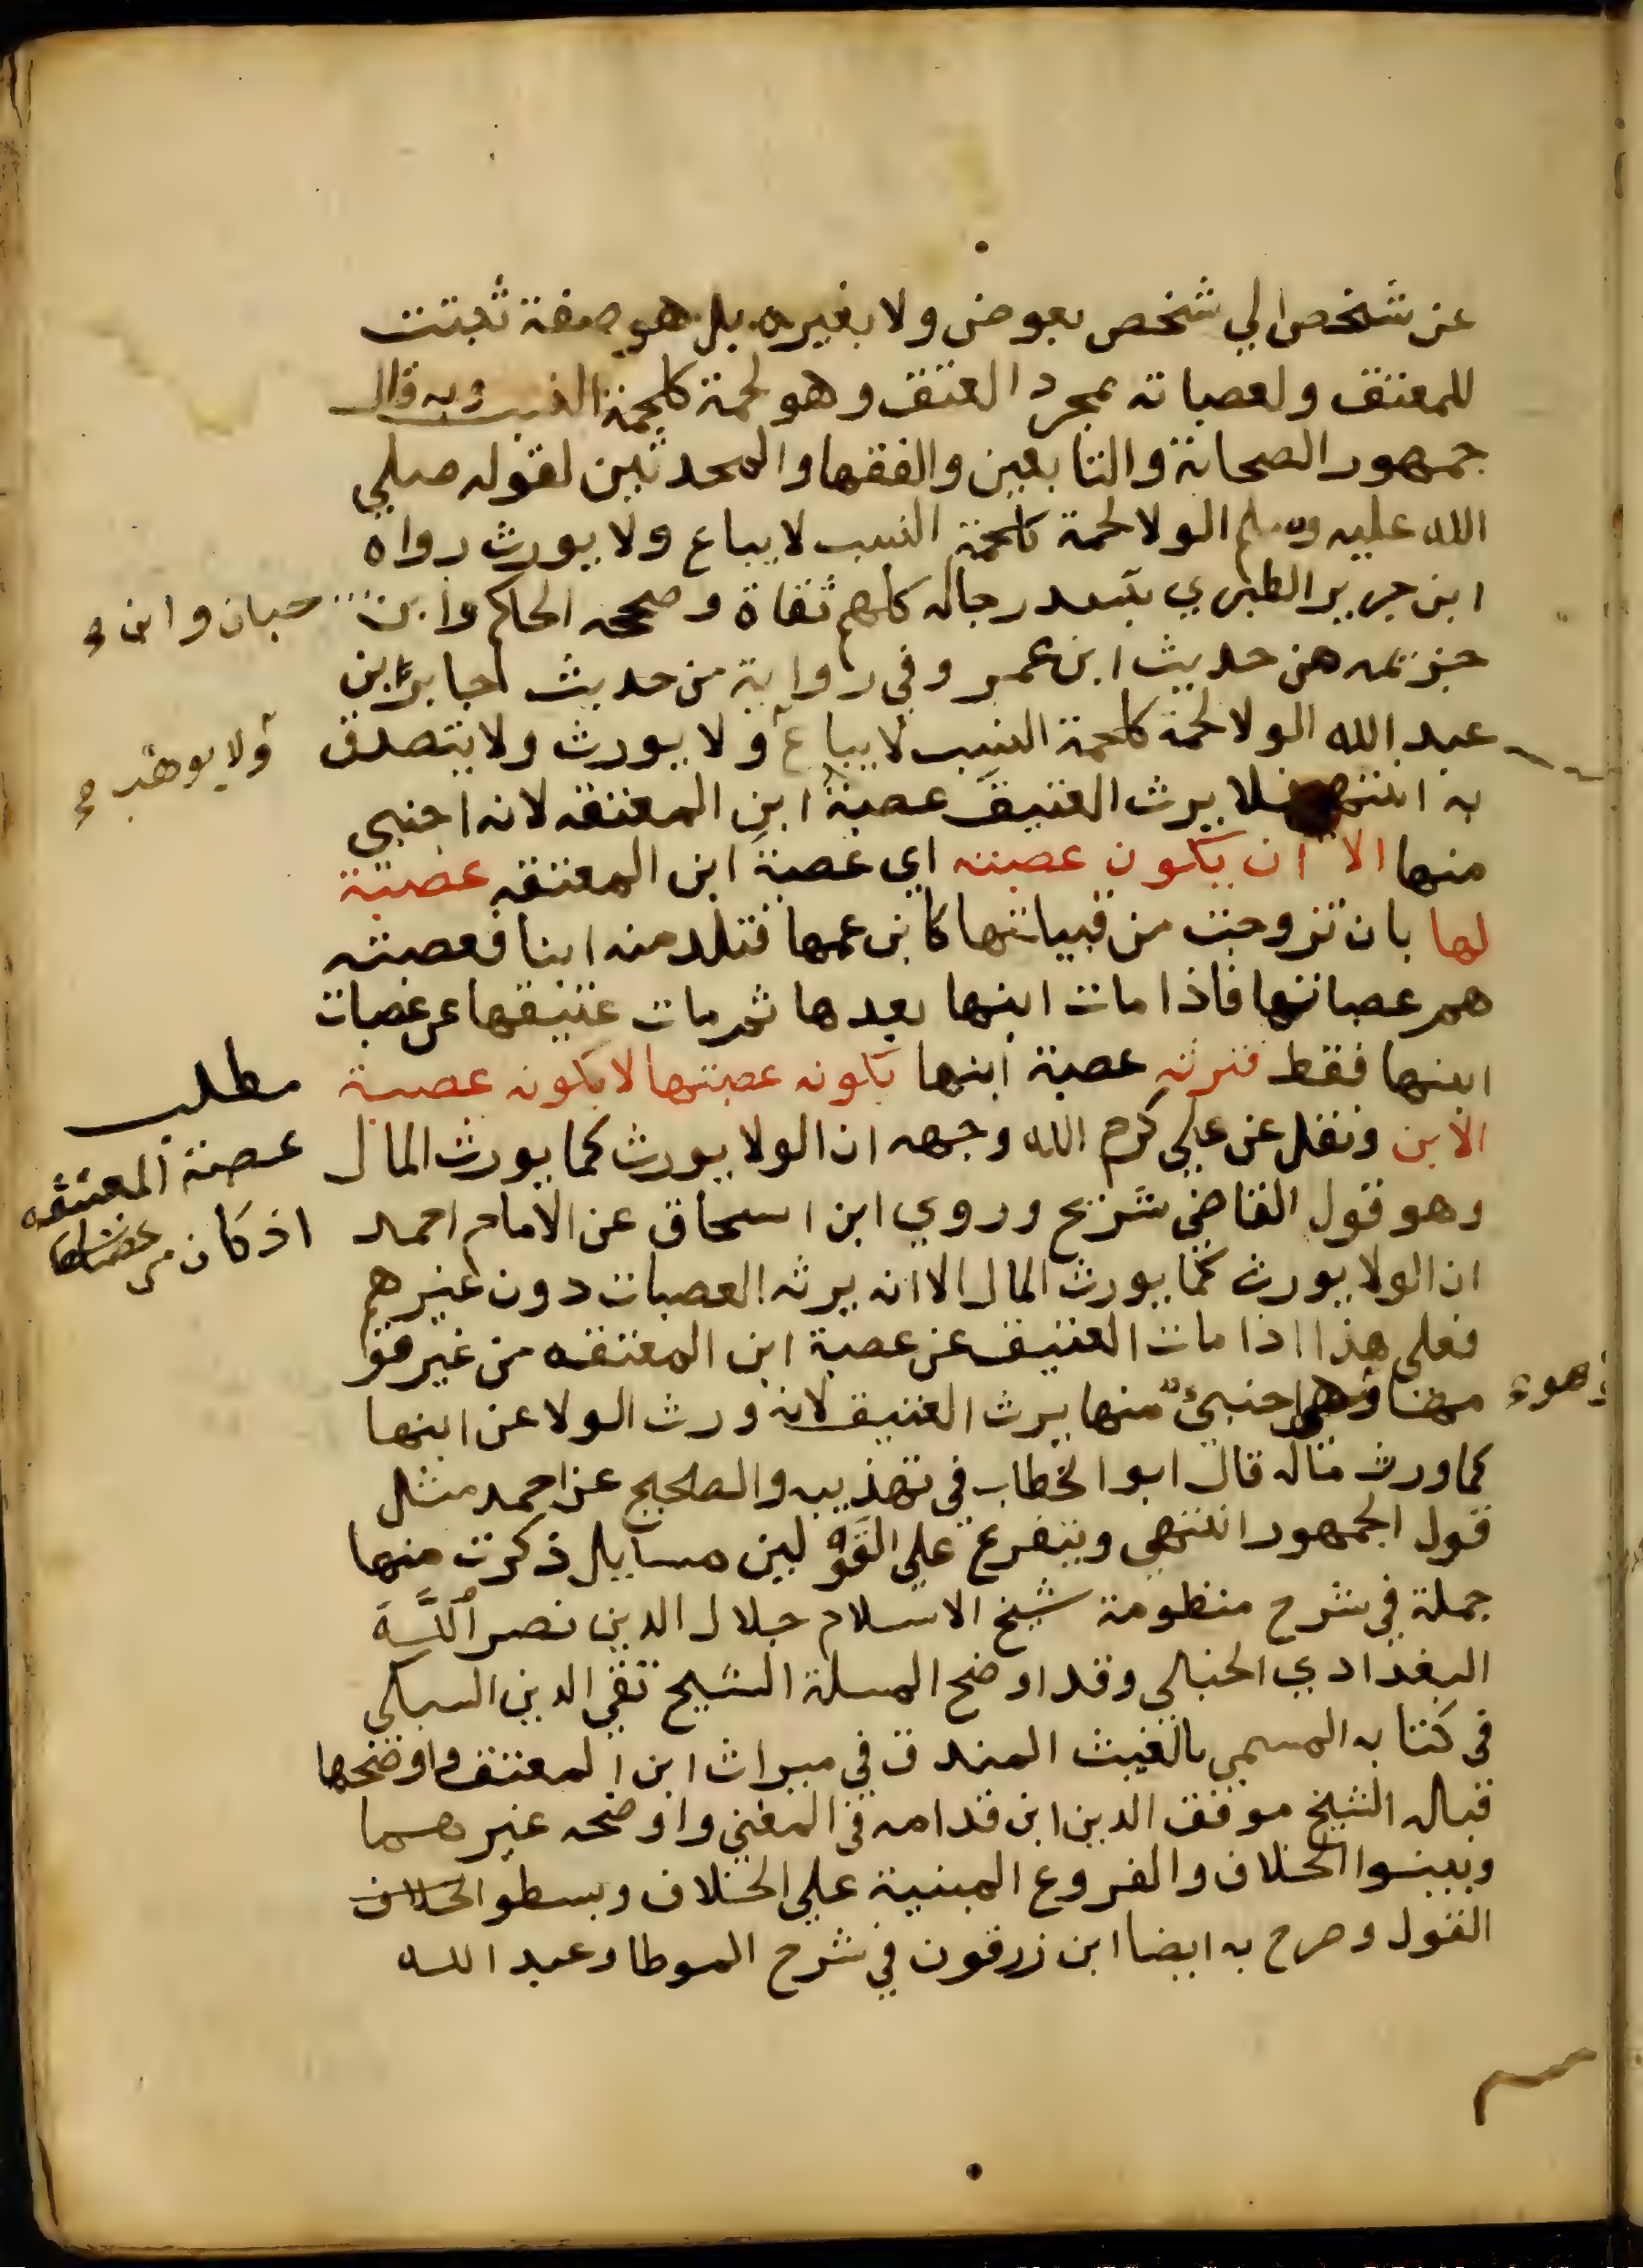 عن شخص الي شخص بعوض ولا بغيره بل هو صفة ثبتت
للمعتق ولعصباته بمجرد العتق وهو لحمة كلحمة النسب وبه قال
جمهور الصحابة والتابعين والفقها والمحدثين لقوله صلي
الله عليه وسلم الولا لحمة كلحمة النسب لا يباع ولا يورث رواه
ابن جرير الطبري بسند رجاله كلهم ثقاة وصححه الحاكم وابن
حبان وابن
خزيمه من حديث ابن عمر وفي رواية من حديث جابر ابن
عبد الله الولا لحمة كلحمة النسب لا يباع ولا يورث ولا يتصدق
ولا يوهب صح
به انتهي فلا يرث العتيق عصبة ابن المعتقه لانه اجنبي
منها الا ان يكون عصبته اي عصبة ابن المعتقه عصبة
لها بان تزوجت من قبيلتها كابن عمها فتلد منه ابنا فعصبته
هم عصباتها فاذا مات ابنها بعدها ثم مات عتيقها عن عصبات
ابنها فقط فترثه عصبة ابنها بكونه عصبتها لا بكونه عصبة
مطلب
عصبة المعتقه
اذ كان من عصباتها
الابن ونقل عن علي كرم الله وجهه ان الولا يورث كما يورث المال
وهو قول القاضي شريح وروي ابن اسحاق عن الامام احمد
ان الولا يورث كما يورث المال الا انه يرثه العصبات دون غيرهم
فعلي هذا اذا مات العتيق عن عصبة ابن المعتقه من غير قو
مها وهو اجنبي منها يرث العتيق لانه ورث الولا عن ابنها
وهو
كما ورث ماله قال ابو الخطاب في تهذيبه والصحيح عن احمد مثل
قول الجمهور انتهي ويتفرع علي القولين مسايل ذكرت منها
جملة في شرح منظومة شيخ الاسلام جلال الدين نصر الله
البغدادي الحنبلي وقد اوضح المسلة الشيخ تقي الدين السبكي
في كتابه المسمي بالغيث المغدق في ميراث ابن المعتق واوضحها
قباله الشيخ موفق الدين ابن قدامه في المغني واوضحه غيرهما
وبينوا الخلاف والفروع المبنية علي الخلاف وبسطوا الخلاف
القول وصرح به ايضا ابن زرقون في شرح الموطا وعبد الله